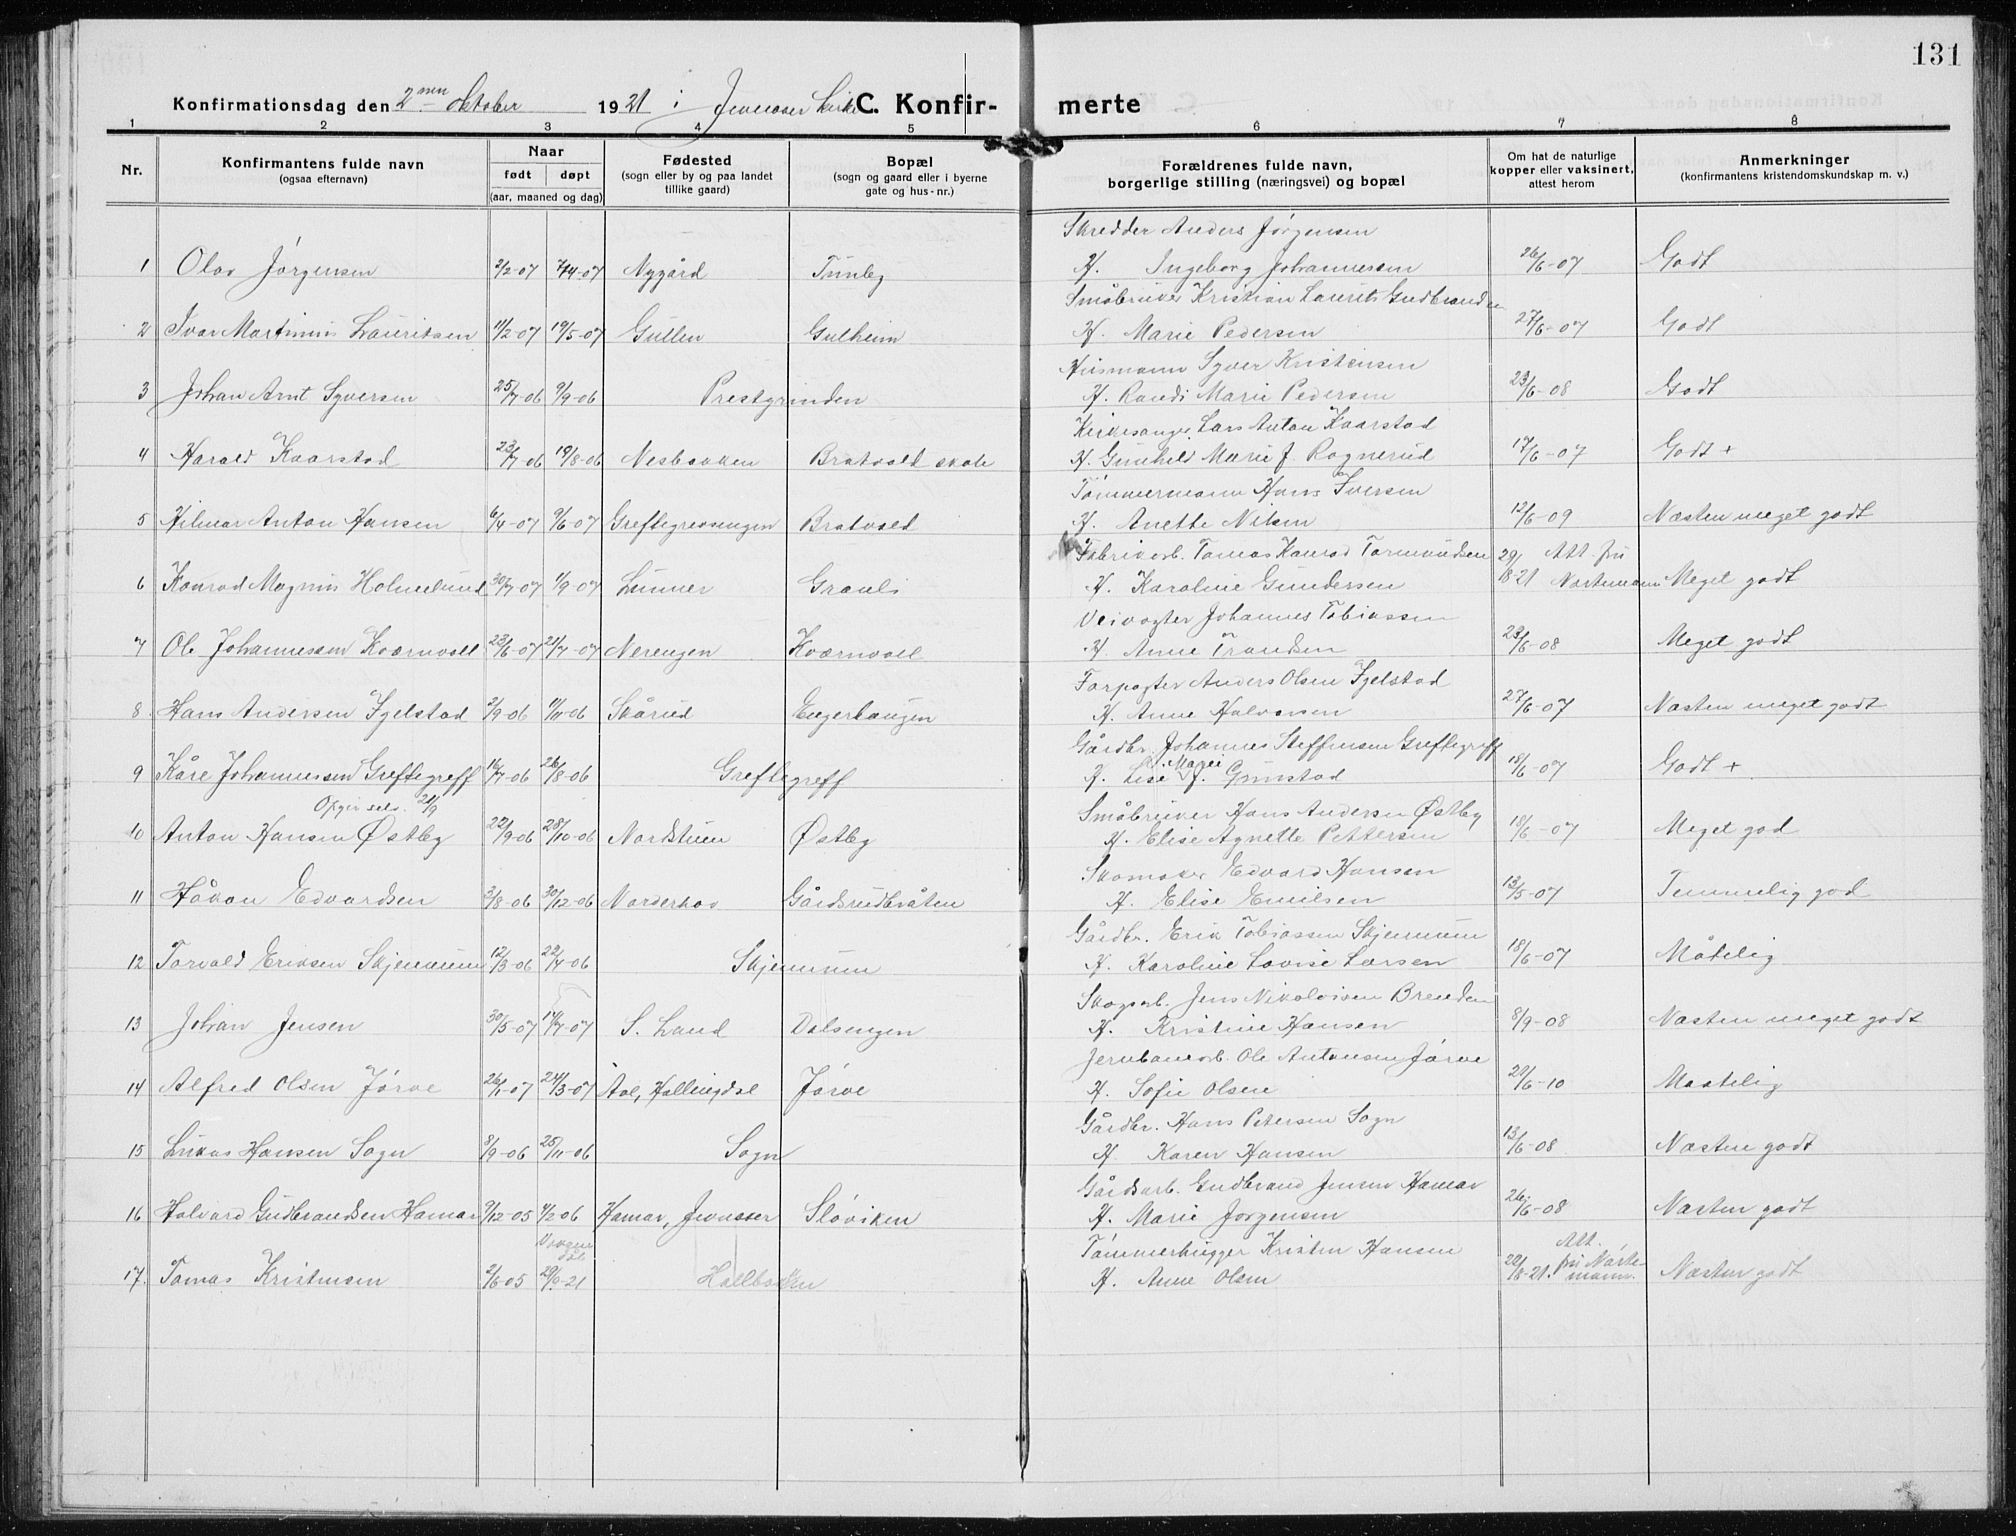 131
Konfirmationsdag den 2nen Oktober 1921 i Jevnaker kirke C. Konfirmerte
1 2 3 4 5 6 7 8
Nr.
Konfirmantens fulde navn
(ogsaa efternavn)
Naar
født døpt
(aar, maaned og dag)
Fødested
(sogn eller by og paa landet
tillike gaard)
Bopæl
(sogn og gaard eller i byerne
gate og hus-nr.)
Forældrenes fulde navn,
borgerlige stilling (næringsvei) og bopæl
Om hat de naturlige
kopper eller vaksinert,
attest herom
Anmerkninger
(konfirmantens kristendomskundskap m. v.)
Skredder Anders Jørgensen
1 Olav Jørgensen 2/2-07 7/4-07 Nygård Tunby H. Ingeborg Johannessen 26/6-07 Godt
Småbruker Kristian Laurits Gudbrandsen
2 Ivar Martinius Lauritsen 11/2-07 19/5-07 Gullen Gulheim H. Marie Pedersen 27/6-07 Godt
Husmann Syver Kristensen
3 Johan Arnt Syversen 25/7-06 9/9-06 Prestgrinden H. Randi Marie Pedersen 23/6-08 Godt
Kirkesanger Lars Anton Kaarstad
4 Harald Kaarstad 23/7-06 19/8-06 Nesbakken Bratvald skole H. Gunhild Marie f. Rognerud 17/6-07 Godt +
Tømmermann Hans Iversen
5 Hilmar Anton Hansen 6/4-07 9/6-07 Greftegrevsengen Bratvald H. Anette Nilsen 12/6-09 Næsten meget godt
Fabrikarb. Tomas Konrad Tormundsen 29/ Att. fra
6 Konrad Magnus Holmelund 30/7-07 1/9-07 Lunner Graali H. Karoline Gundersen 18-21 Nortemann Meget godt
Veivogter Johannes Tobiassen
7 Ole Johannessen Kværnvoll 23/6-07 21/7-07 Nerengen Kværnvoll H. Anne Trondsen 23/6-08 Meget godt
Forpagter Anders Olsen Igelstad
8 Hans Andersen Igelstad 2/9-06 11/11-06 Skårud Engerhaugen H. Anne Halvorsen 27/6-07 Næsten meget godt
Gårdbr. Johannes Steffensen Greftegreff
9 Kåre Johannessen Greftegreff 16/7-06 26/8-06 Greftegreff H. Lise Marie f. Grinstad 18/6-07 Godt +
Opgir selv. 21/9
Småbruker Hans Andersen Østby
10 Anton Hansen Østby 22/9-06 28/10-06 Nordstuen Østby H. Elise Agnette Pettersen 18/6-07 Meget god
Skomaker Edvard Hansen
11 Håkon Edvardsen 3/8-06 30/12-06 Norderhov Gårdsrudbråten H. Elise Emilsen 13/5-07 Temmelig god
Gårdbr. Erik Tobiassen Skjennum
12 Torvald Eriksen Skjennum 12/3-06 22/4-06 Skjennum H. Karoline Lovise Larsen 18/6-07 Måtelig
Skogsarb. Jens Nikolaisen Brenden
13 Johan Jensen 30/5-07 14/7-07 S. Land Dalsengen H. Kristine Hansen 8/9-08 Næsten meget godt
Jernbanearb. Ole Antonsen Jørve
14 Alfred Olsen Jørve 26/1-07 24/3-07 Aal, Hallingdal Jørve H. Sofie Olsen 20/6-10 Maatelig
Gårdbr. Hans Petersen Sogn
15 Lukas Hansen Sogn 8/9-06 25/11-06 Sogn H. Karen Hansen 13/6-08 Næsten godt
Gårdsarb. Gudbrand Jensen Hamar
16 Halvard Gudbrandsen Hamar 9/12-05 4/2-06 Hamar, Jevnaker Sløviken H. Marie Jørgensen 26/6-08 Næsten godt
Voksendåb Tømmerhugger Kristen Hansen Att.
17. Tomas Kristensen 2/6-05 29/9-21 Hallbakken H. Anne Olsen 20/8-21. fra Nortemann. Næsten godt